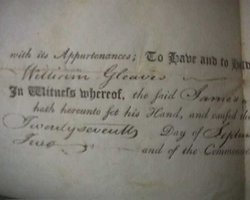 with its Appurtenances; To Have and to Hold
William Gleaves
In Witness whereof, the said James
hath hereunto set his Hand, and caused the
Twenty seventh Day of Septem
Two and of the Commonw